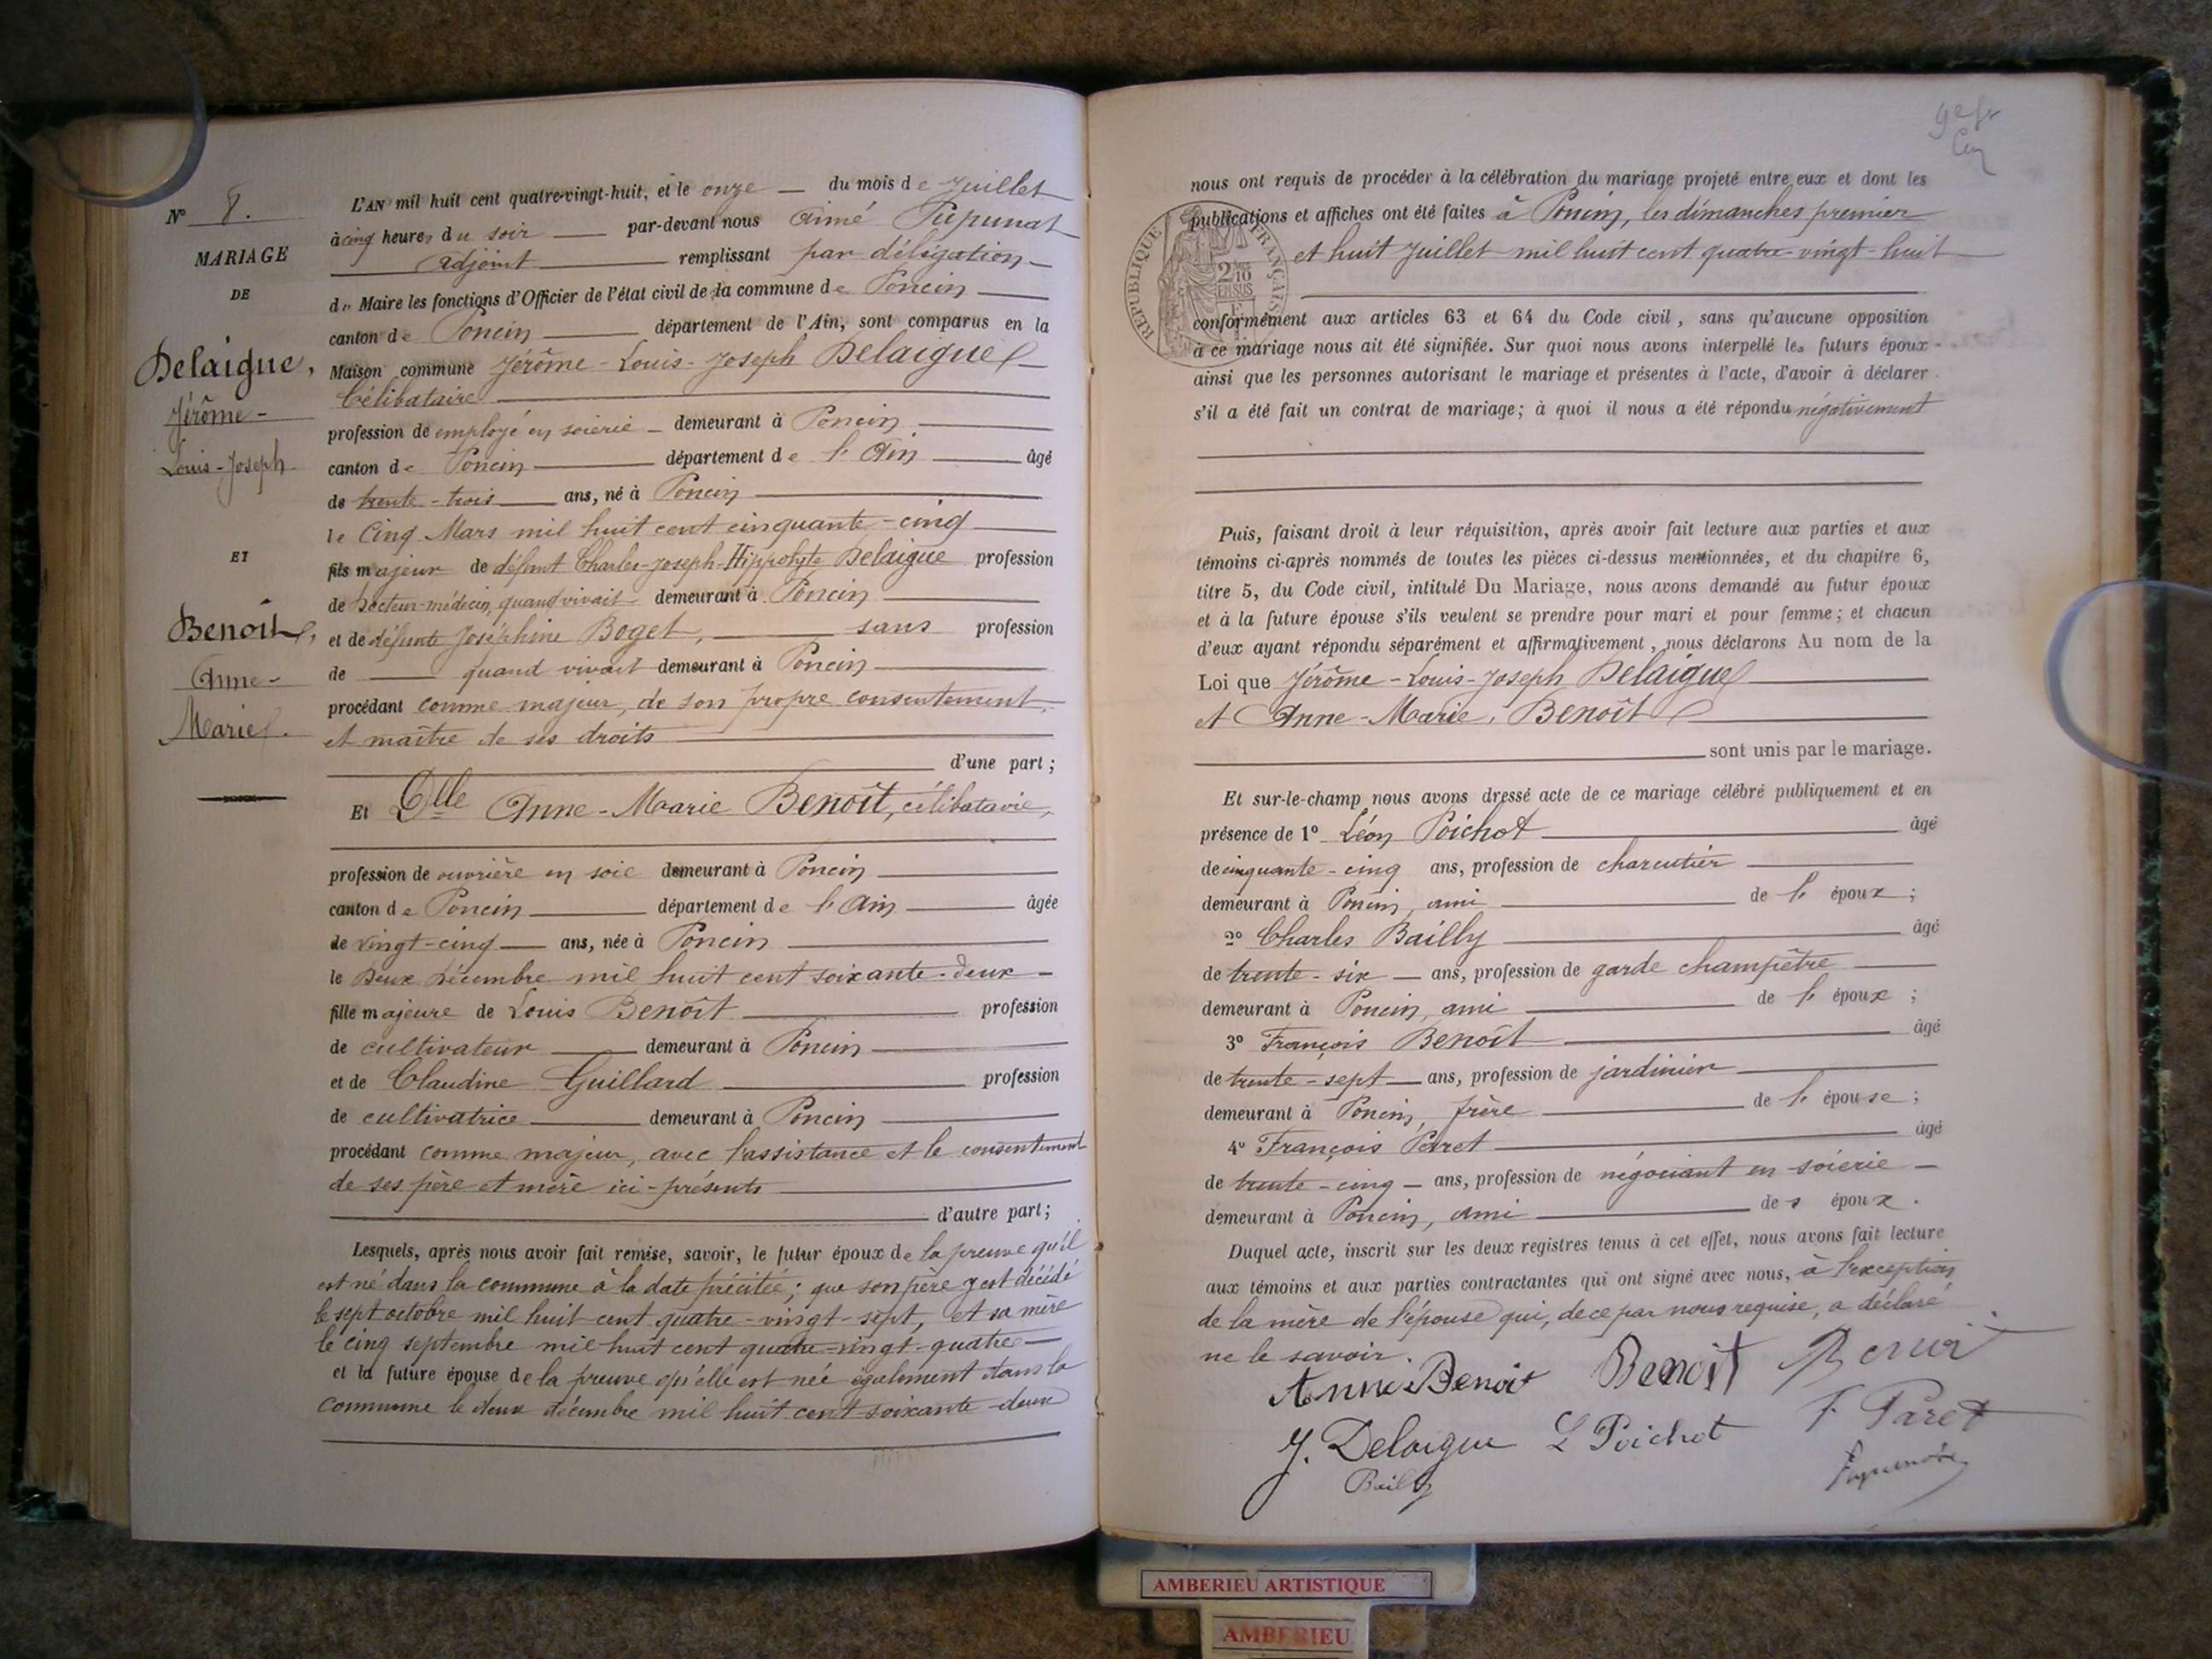 N° 8.
MARIAGE
DE
Delaigue,
Jérôme-
Louis-Joseph
ET
Benoît,
Anne-
Marie.
L'AN mil huit cent quatre-vingt-huit, et le onze du mois de Juillet
à cinq heures du soir par-devant nous Aimé
Adjoint remplissant par délégation
du Maire les fonctions d'Officier de l'état civil de la commune de Poncin
canton de Poncin département de l'Ain, sont comparus en la
Maison commune Jérôme-Louis-Joseph Delaigue
Célibataire
profession de employé en soierie demeurant à Poncin
canton de Poncin département de l'Ain âgé
de trente-trois ans, né à Poncin
le Cinq Mars mil huit cent cinquante-cinq
fils majeur de défunt Charles-Joseph-Hippolyte Delaigue profession
de Docteur-médecin, quand vivait demeurant à Poncin
et de défunte Joséphine Boget, sans profession
de quand vivait demeurant à Poncin
procédant comme majeur, de son propre consentement,
et maître de ses droits
d'une part;
Et Dlle Anne-Marie Benoît, célibataire,
profession de ouvrière en soie demeurant à Poncin
canton de Poncin département de l'Ain âgée
de vingt-cinq ans, née à Poncin
le Deux Décembre mil huit cent soixante-deux
fille majeure de Louis Benoît profession
de cultivateur demeurant à Poncin
et de Claudine Guillard profession
de cultivatrice demeurant à Poncin
procédant comme majeur, avec l'assistance et le consentement
de ses père et mère ici-présents
d'autre part;
Lesquels, après nous avoir fait remise, savoir, le futur époux de la preuve qu'il
est né dans la commune à la date précitée; que son père y est décédé
le sept octobre mil huit cent quatre-vingt-sept, et sa mère
le cinq septembre mil huit cent quatre-vingt-quatre
et la future épouse de la preuve qu'elle est née également dans la
commune le deux décembre mil huit cent soixante-deux
nous ont requis de procéder à la célébration du mariage projeté entre eux et dont les
publications et affiches ont été faites à Poncin, les dimanches premier
et huit Juillet mil huit cent quatre-vingt-huit
RÉPUBLIQUE FRANÇAISE
2/10 EN SUS
conformément aux articles 63 et 64 du Code civil, sans qu'aucune opposition
à ce mariage nous ait été signifiée. Sur quoi nous avons interpellé les futurs époux
ainsi que les personnes autorisant le mariage et présentes à l'acte, d'avoir à déclarer
s'il a été fait un contrat de mariage; à quoi il nous a été répondu négativement
Puis, faisant droit à leur réquisition, après avoir fait lecture aux parties et aux
témoins ci-après nommés de toutes les pièces ci-dessus mentionnées, et du chapitre 6,
titre 5, du Code civil, intitulé Du Mariage, nous avons demandé au futur époux
et à la future épouse s'ils veulent se prendre pour mari et pour femme; et chacun
d'eux ayant répondu séparément et affirmativement, nous déclarons Au nom de la
Loi que Jérôme-Louis-Joseph Delaigue
et Anne-Marie Benoît
sont unis par le mariage.
Et sur-le-champ nous avons dressé acte de ce mariage célébré publiquement et en
présence de 1° Léon Poichot âgé
de cinquante-cinq ans, profession de charcutier
demeurant à Poncin, ami de l'époux;
2° Charles Bailly âgé
de trente-six ans, profession de garde champêtre
demeurant à Poncin, ami de l'époux;
3° François Benoît âgé
de trente-sept ans, profession de jardinier
demeurant à Poncin, frère de l'épouse;
4° François Paret âgé
de trente-cinq ans, profession de négociant en soierie
demeurant à Poncin, ami des époux.
Duquel acte, inscrit sur les deux registres tenus à cet effet, nous avons fait lecture
aux témoins et aux parties contractantes qui ont signé avec nous, à l'exception
de la mère de l'épouse qui, de ce par nous requise, a déclaré
ne le savoir.
Anne Benoit Benoit
J. Delaigue L Poichot F. Paret
Bailly
AMBERIEU ARTISTIQUE
AMBERIEU